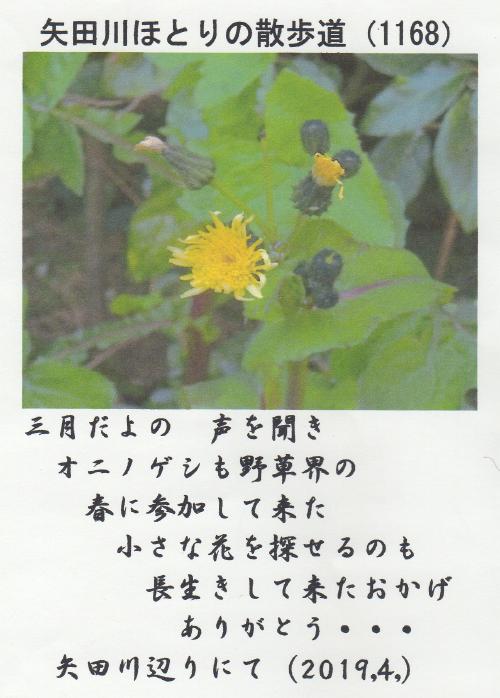 矢田川ほとりの散歩道（1168）
三月だよの　声を聞き
オニノゲシも野草界の
春に参加して来た
小さな花を探せるのも
長生きして来たおかげ
ありがとう・・・
矢田川辺りにて（2019,4,）